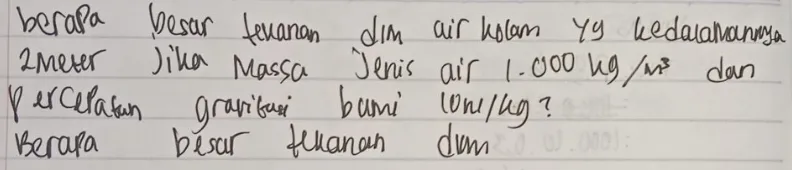 berapa besar tekanan dlm air kolam yg kedalamannya
2Meter Jika Massa Jenis air 1.000 kg/m³ dan
Percepatan gravitasi bumi 10N/kg?
Berapa besar tekanan dlm